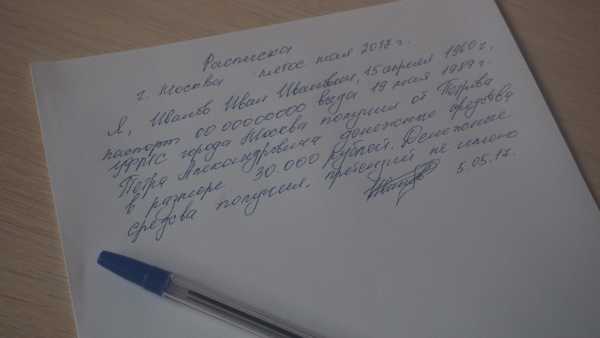 Расписка
г. Москва мая 2017 г.
Я, Иванов Иван Иванович, 15 апреля 1960 г,
паспорт 00 00000000 выдан 19 мая 1989 г.
УФМС города Москва получил от Петрова
Петра Александровича денежные средства
в размере 30 000 рублей. Денежные
средства получил, претензий не имею
5.05.17.